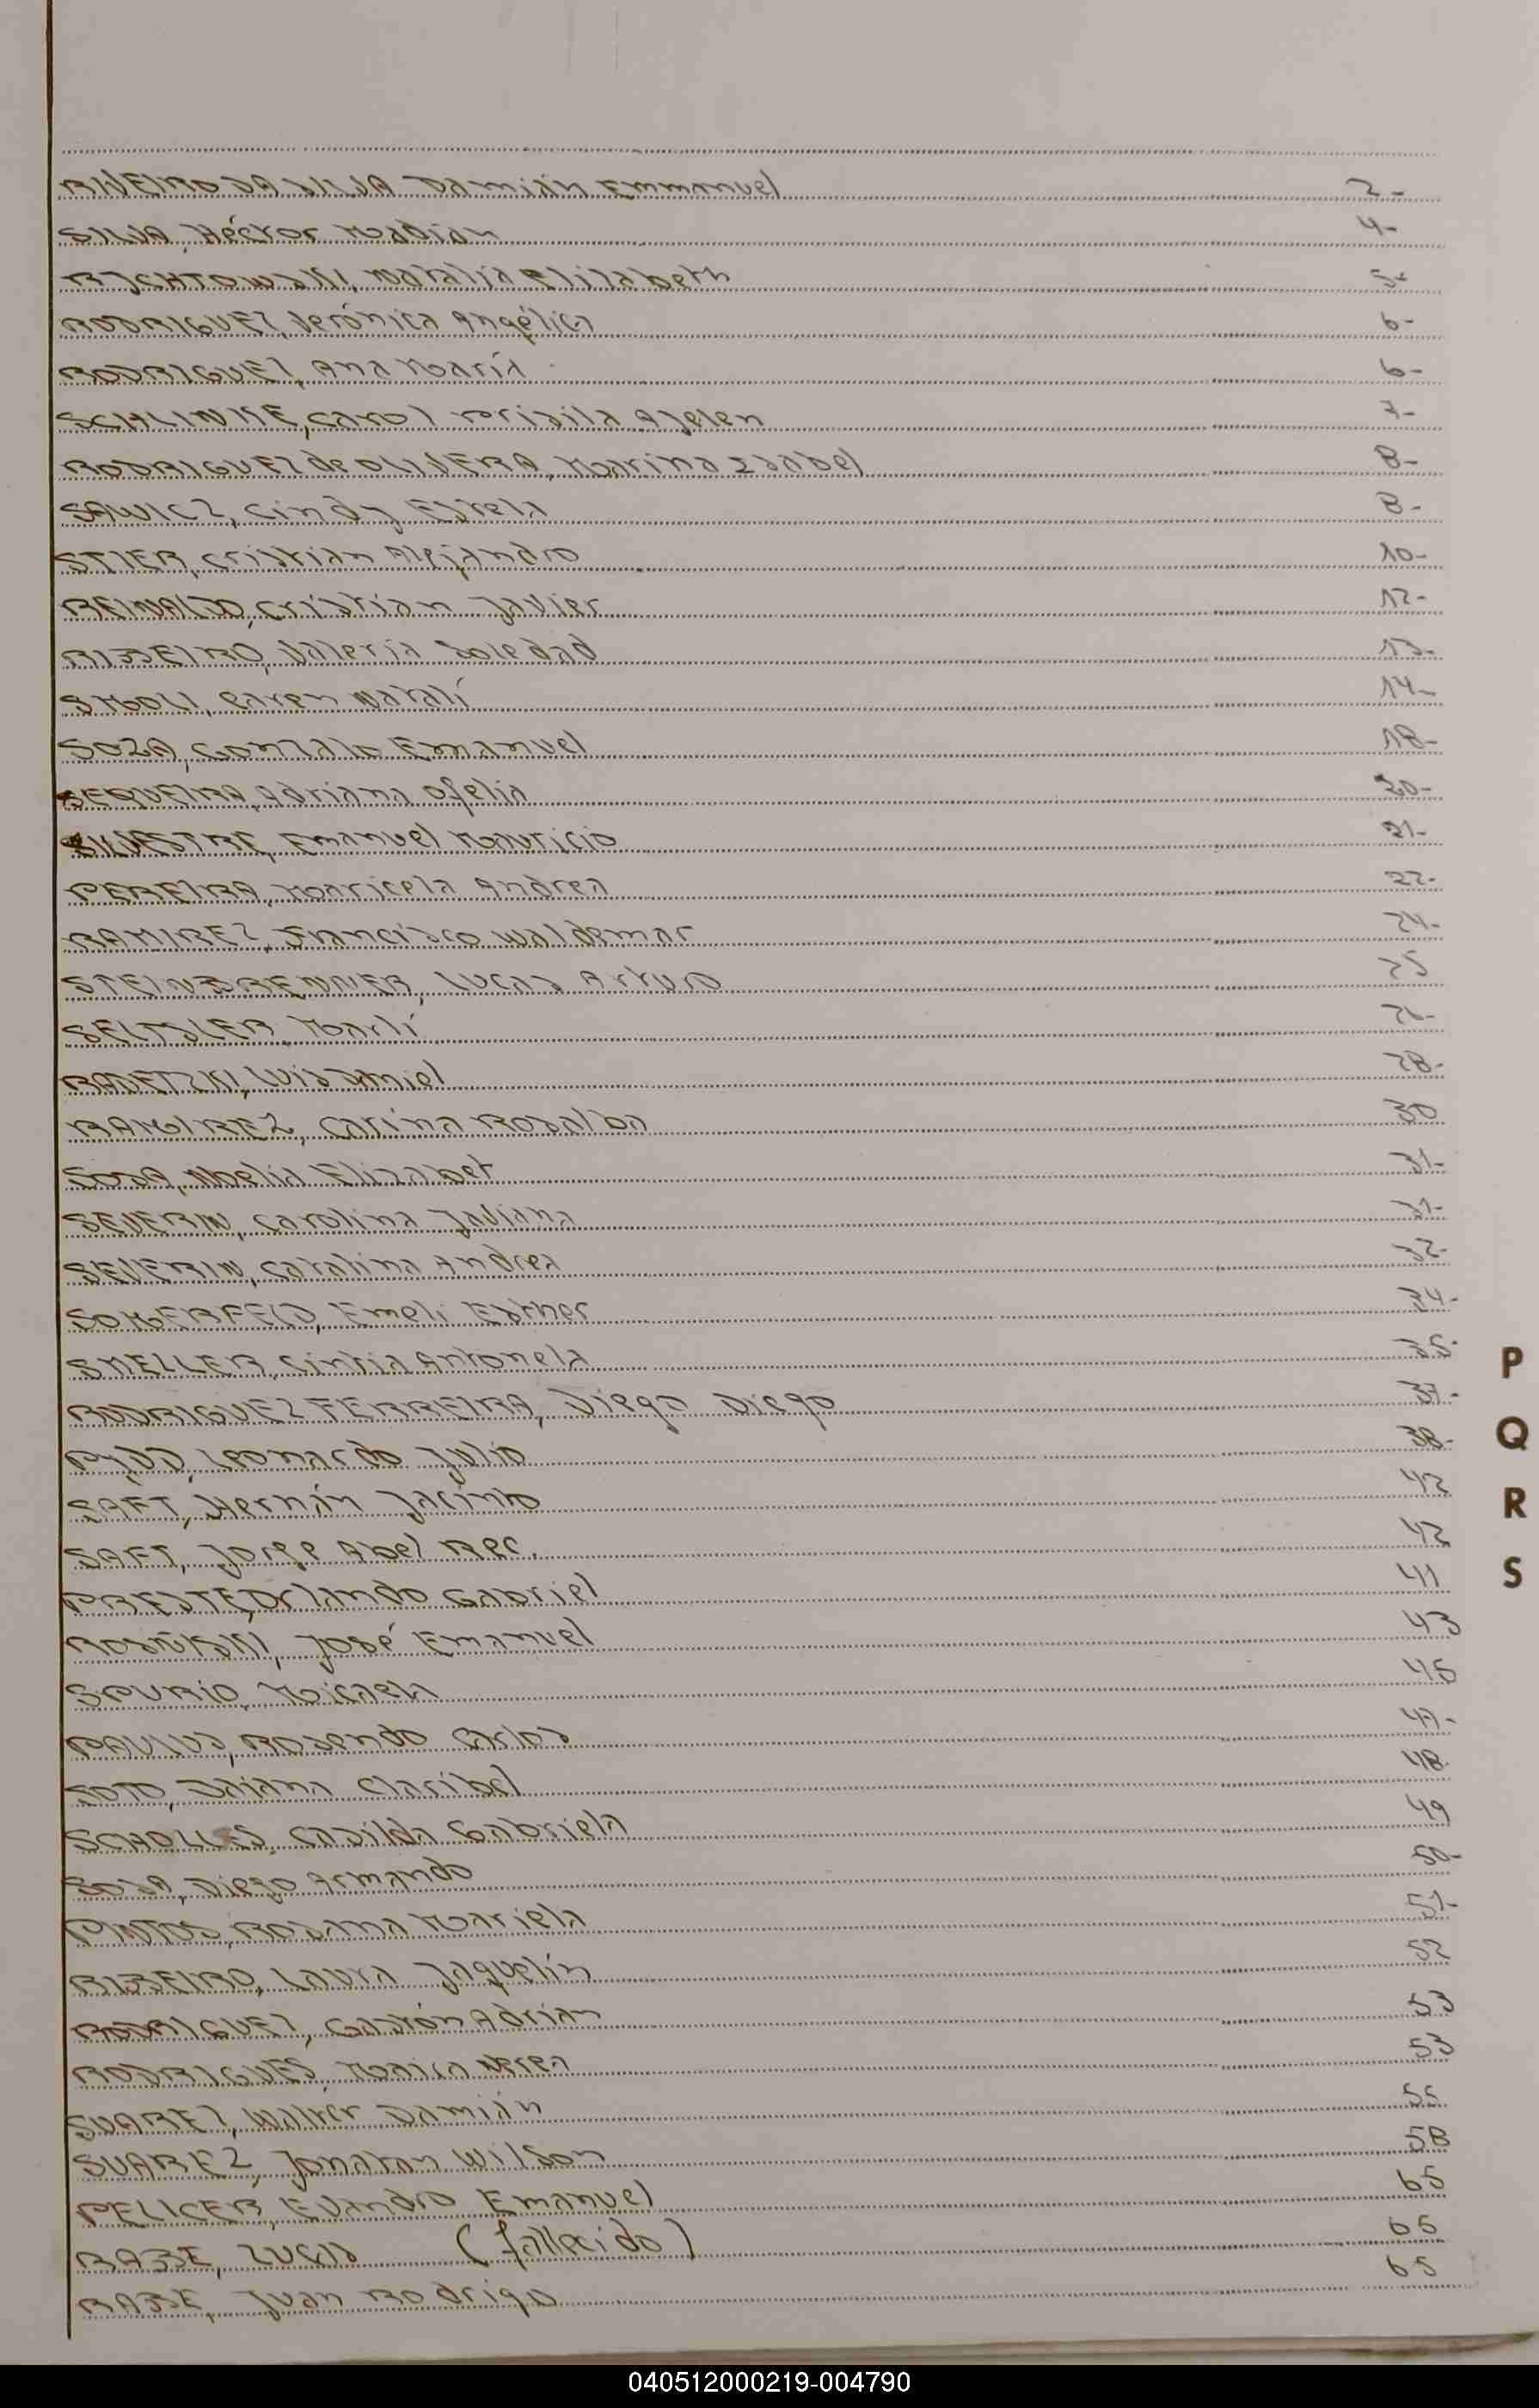 RIVEIRO DA SILVA Damián Emmanuel 2-
SILVA, Héctor Fabián 4-
RICHTOWSKI, Natalia Elizabeth 5-
RODRIGUEZ, Verónica Angélica 6-
RODRIGUEZ, Ana María 6-
SCHLINKE, Carol Prisila Ayelen 7-
RODRIGUEZ de OLIVERA, Marina Isabel 8-
SAWICZ, Cindy Estela 8-
STIER, Cristian Alejandro 10-
REINALDO, Cristian Javier 12-
RIBEIRO, Valeria Soledad 13-
SMOLI, Caren Natalí 14-
SOZA, Gonzalo Emanuel 18-
SEQUEIRA, Adriana Ofelia 20-
SILVESTRE, Emanuel Mauricio 21-
PEREIRA, Maricela Andrea 22-
RAMIREZ, Francisco Waldemar 24-
STEINBRENNER, Lucas Arturo 25
SELTSLER, Marlí 26-
RADETZKI, Luis Daniel 28-
RAMIREZ, Carina Rosalba 30
SOSA, Noelia Elizabet 31-
SEVERIN, Carolina Javiana 31-
SEVERIN, Catalina Andrea 32-
SOMERFELD, Emeli Esther 34-
SMELLER, Cintia Antonela 35-
RODRIGUEZ FERREIRA, Diego Diego 37-
PYDD, Leonardo Julio 38-
SAFT, Hernán Jacinto 42
SAFT, Jorge Abel Rec. 42
PRESTE, Orlando Gabriel 41
ROSIÑSKI, José Emanuel 43
SPURIO, Micaela 45
PAULUS, Rosendo Carlos 47-
SOTO, Daiana Claribel 48
SCHOLLES, Casilda Gabriela 49
SOSA, Diego Armando 50-
PINTOS, Rosana Mariela 51-
RIBEIRO, Laura Jaquelín 52
RODRIGUEZ, Gastón Adrián 53
RODRIGUES, Maira Nerea 53
SUAREZ, Walter Damián 55
SUAREZ, Jonatan Wilson 58
PELICER, Evandro Emanuel 65
RABSE, Lucas (fallecido) 65
RABSE, Juan Rodrigo 65
P
Q
R
S
040512000219-004790